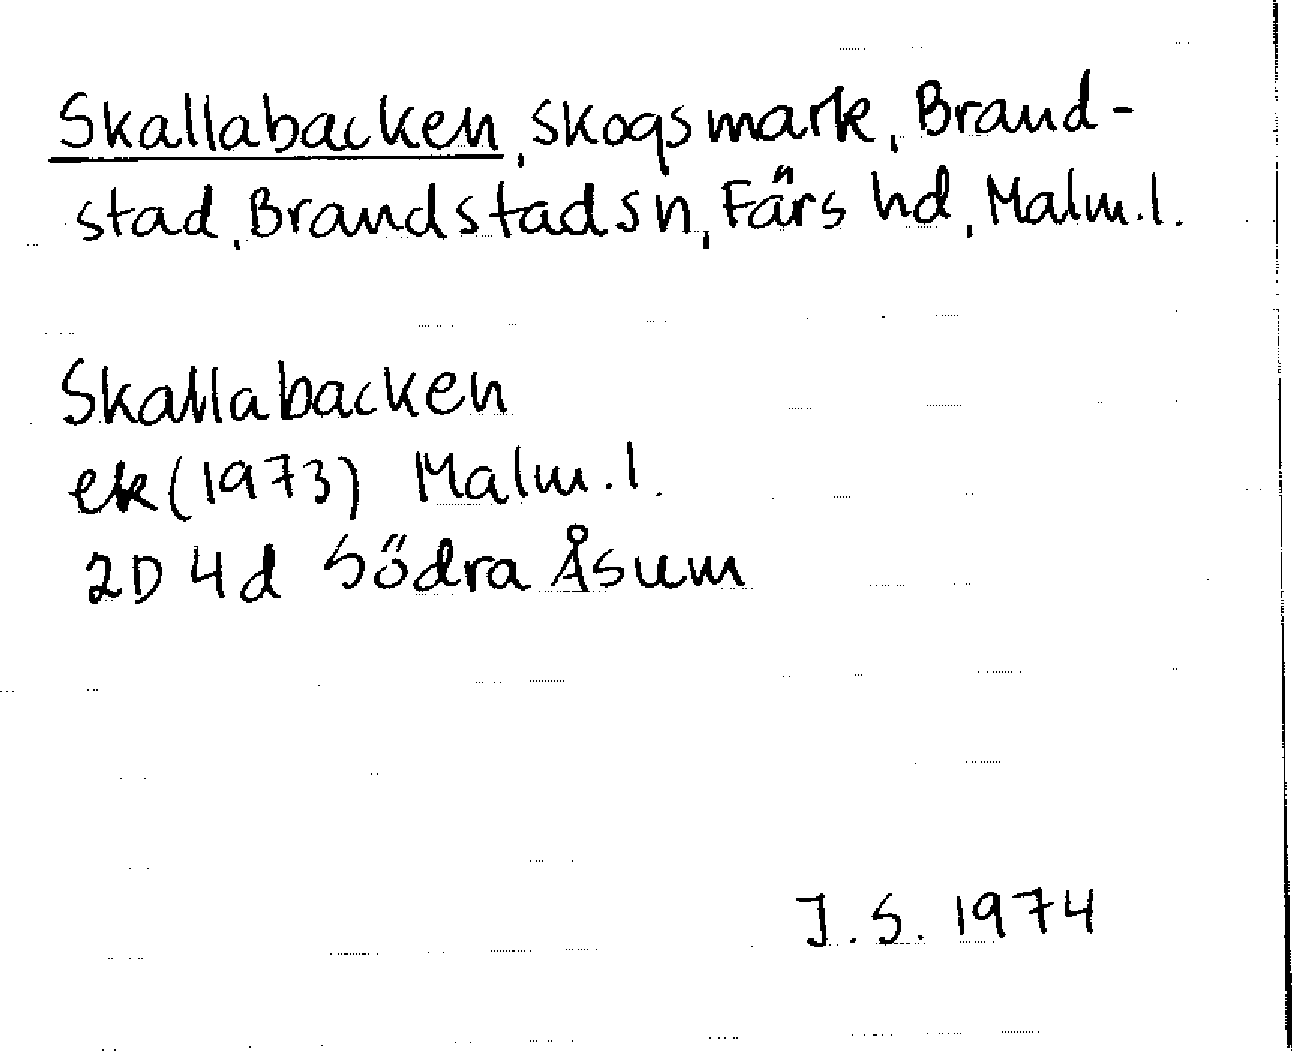 Skallabacken, skogsmark, Brand-
stad, Brandstad sn, Färs hd, Malm.l.
Skallabacken
ek (1973) Malm.l.
2D 4d Södra Åsum
J.S. 1974